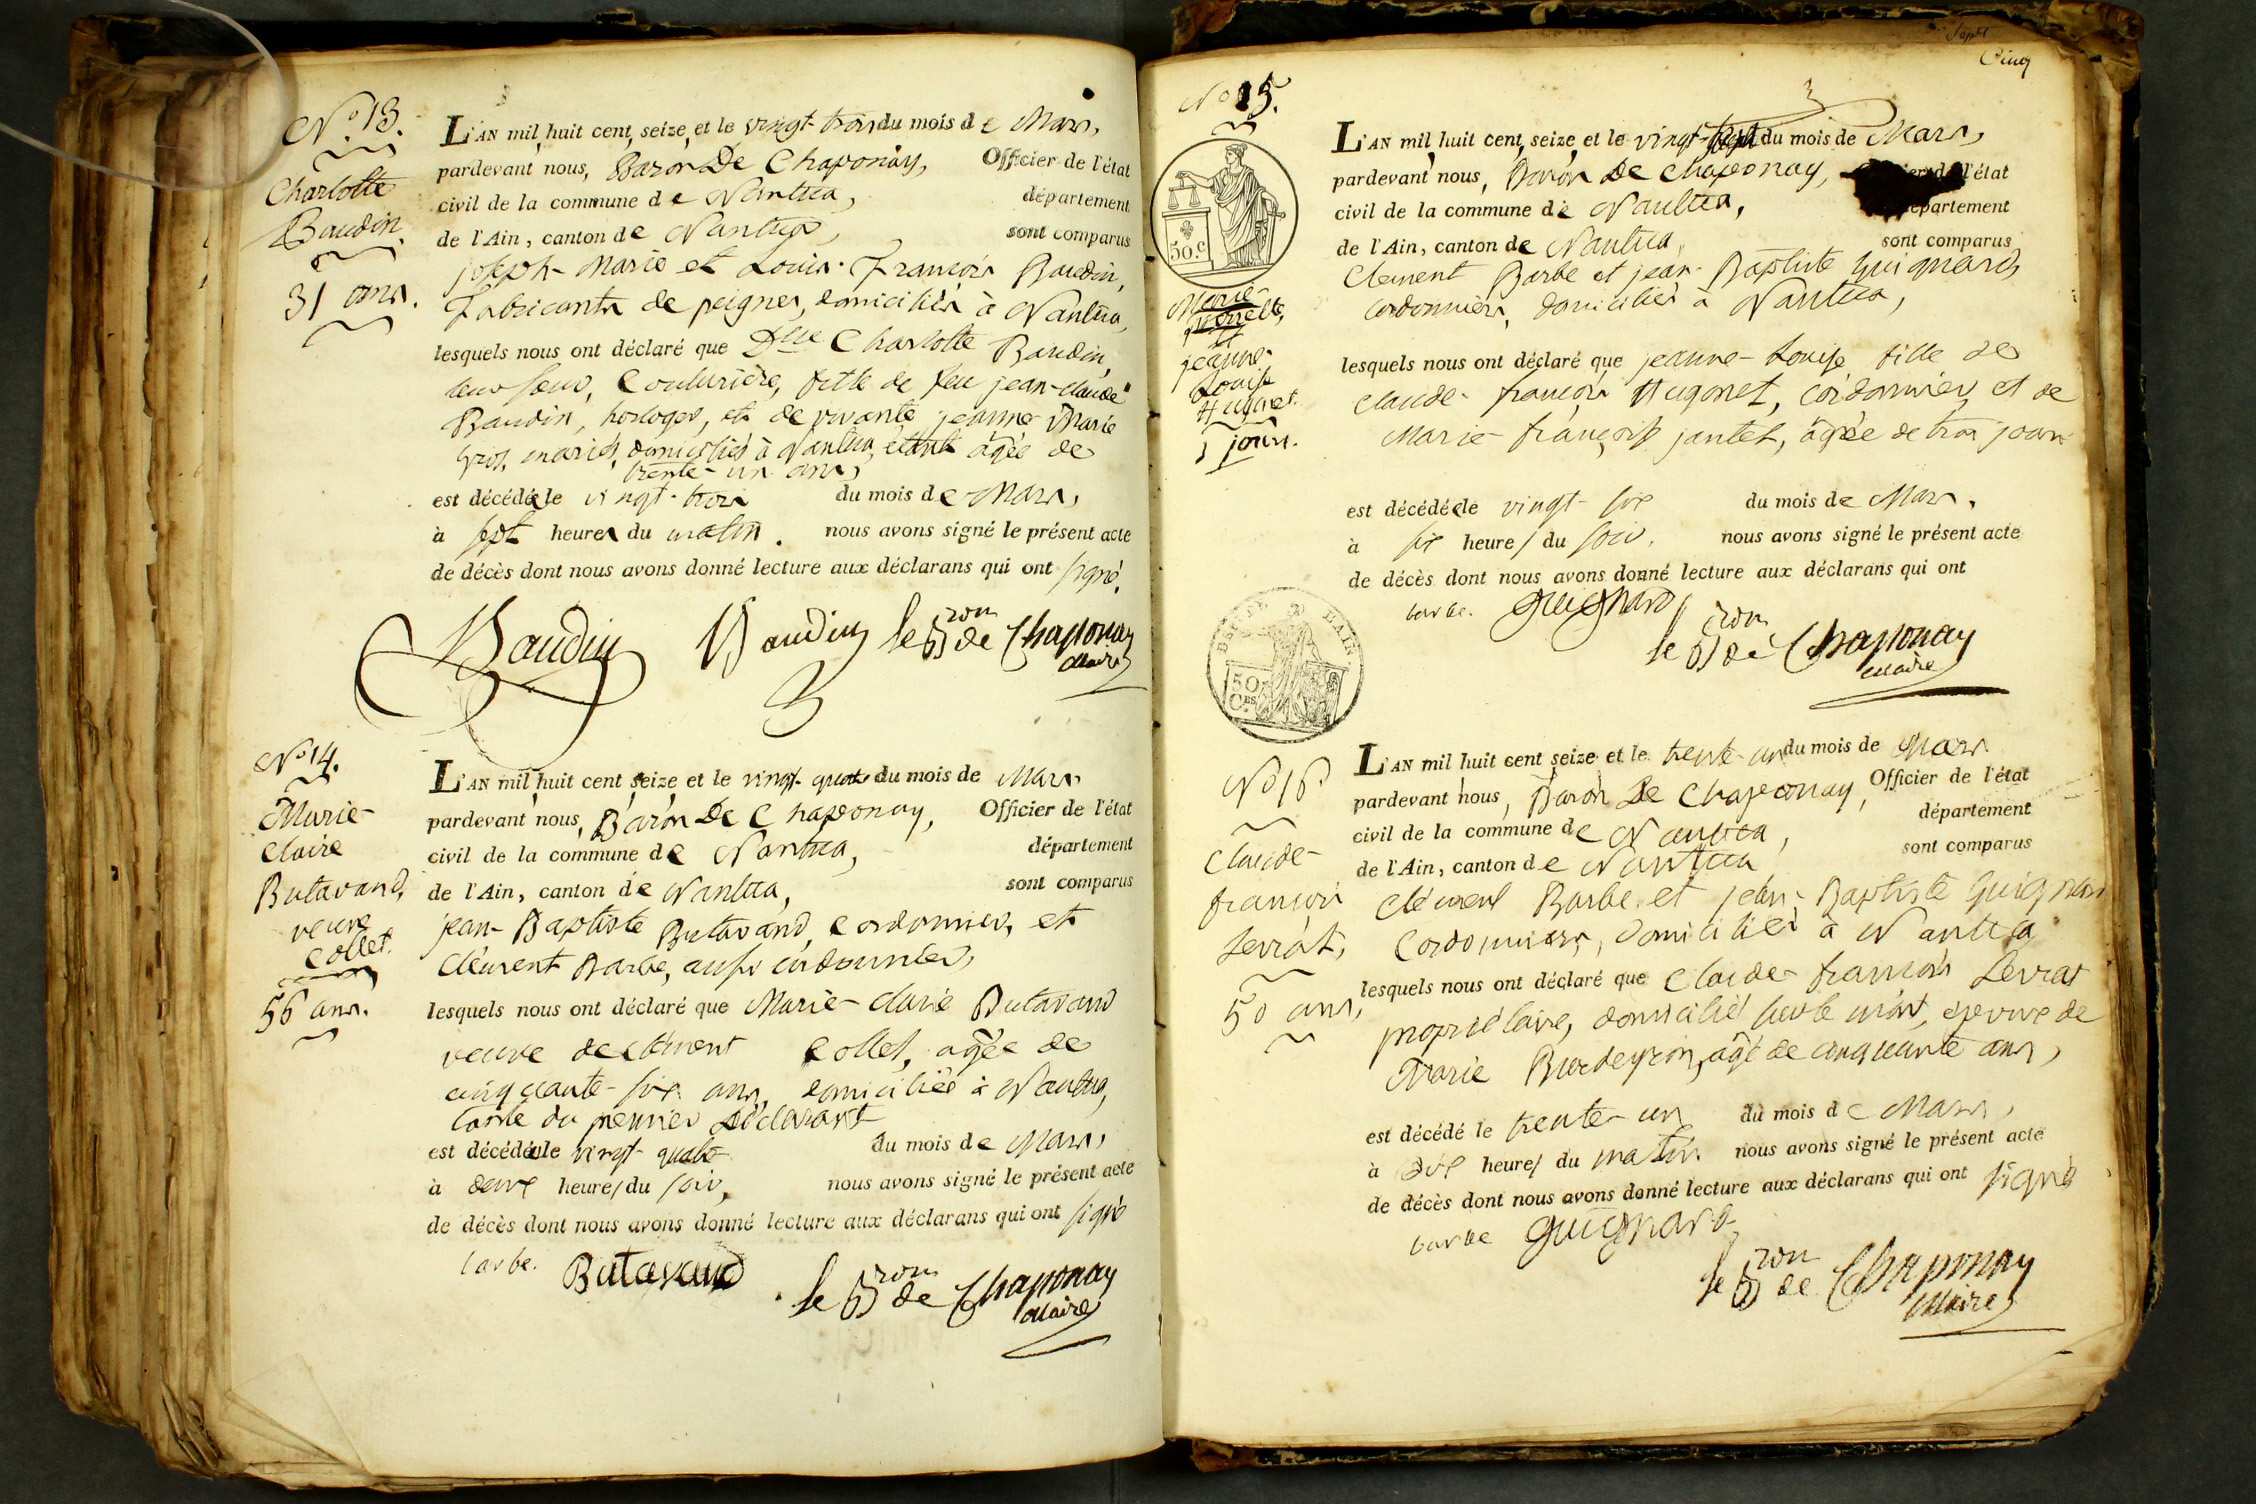 N.º 13.
Charlotte
Baudin.
31 ans.
L'AN mil huit cent seize et le vingt-trois du mois de Mars,
pardevant nous, Baron De Chaponay, Officier de l'état
civil de la commune de Nantua, département
de l'Ain, canton de Nantua, sont comparus
joseph-Marie et Louis-françois Baudin,
fabricants de peignes, domiciliés à Nantua,
lesquels nous ont déclaré que Dlle Charlotte Baudin,
leur soeur, Couturière, fille de feu jean-claude
Baudin, horloger, et de vivante jeanne Marie
Gros, mariés, domiciliés à Nantua, âgée de
trente-un ans,
est décédée le vingt-trois du mois de Mars,
à sept heures du matin. nous avons signé le présent acte
de décès dont nous avons donné lecture aux déclarans qui ont signé.
Baudin Baudin le Bron de Chaponay
Maire
Nº 14.
Marie-
Claire
Butavand,
veuve
Collet.
56 ans.
L'AN mil huit cent seize et le vingt-quatre du mois de Mars
pardevant nous, Baron De Chaponay, Officier de l'état
civil de la commune de Nantua, département
de l'Ain, canton de Nantua, sont comparus
jean-Baptiste Butavand, Cordonnier, et
Clément Barbe, aussi cordonnier,
lesquels nous ont déclaré que Marie-Claire Butavand
veuve de Clément Collet, âgée de
cinquante-six ans, domiciliée à Nantua,
tante du premier déclarant
est décédée le vingt-quatre du mois de Mars,
à deux heures du soir, nous avons signé le présent acte
de décès dont nous avons donné lecture aux déclarans qui ont signé
barbe. Butavand le Bron de Chaponay
Maire
Cinq
Nº 15.
50.c
jeanne-
Louise
Hugonet.
3 jours.
L'AN mil huit cent seize et le vingt-sept du mois de Mars,
pardevant nous, Baron De Chaponay, l'état
civil de la commune de Nantua, département
de l'Ain, canton de Nantua, sont comparus
Clement Barbe et jean-Baptiste Guignard,
cordonniers, domiciliés à Nantua,
lesquels nous ont déclaré que jeanne-Louise fille de
claude-françois Hugonet, cordonnier, et de
Marie-françoise jantet, âgée de trois jours
est décédée le vingt-six du mois de Mars,
à six heures du soir, nous avons signé le présent acte
de décès dont nous avons donné lecture aux déclarans qui ont
barbe. guignard le Bron de Chaponay
Maire
50
Ces
L'AIN.
Nº 16
Claude-
françois
Levrat,
50 ans,
L'AN mil huit cent seize et le trente-un du mois de Mars
pardevant nous, Baron De Chaponay, Officier de l'état
civil de la commune de Nantua, département
de l'Ain, canton de Nantua sont comparus
Clément Barbe et jean-Baptiste Guignard
Cordonniers, domiciliés à Nantua
lesquels nous ont déclaré que Claude-françois Levrat
propriétaire, domicilié époux de
Marie âgé de cinquante ans,
est décédé le trente-un du mois de Mars,
à six heures du matin. nous avons signé le présent acte
de décès dont nous avons donné lecture aux déclarans qui ont signé
barbe guignard
le Bron de Chaponay
Maire